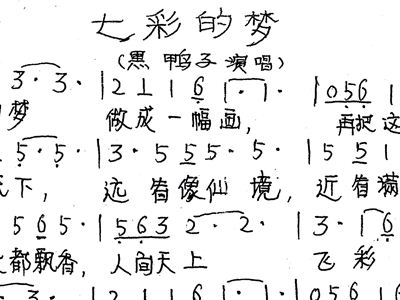 七彩的梦
(黑鸭子演唱)
3· 3· | 2 1 1 6 1· 1· | 0 5 6 1
梦 做成一幅画, 再把这
5· 5· | 3· 5 5 5· 5· | 5 5 1
下, 远看像仙境, 近看满
5 6 5· | 5 6 3 2· 2· | 3· 1 6
都飘香, 人间天上 飞彩